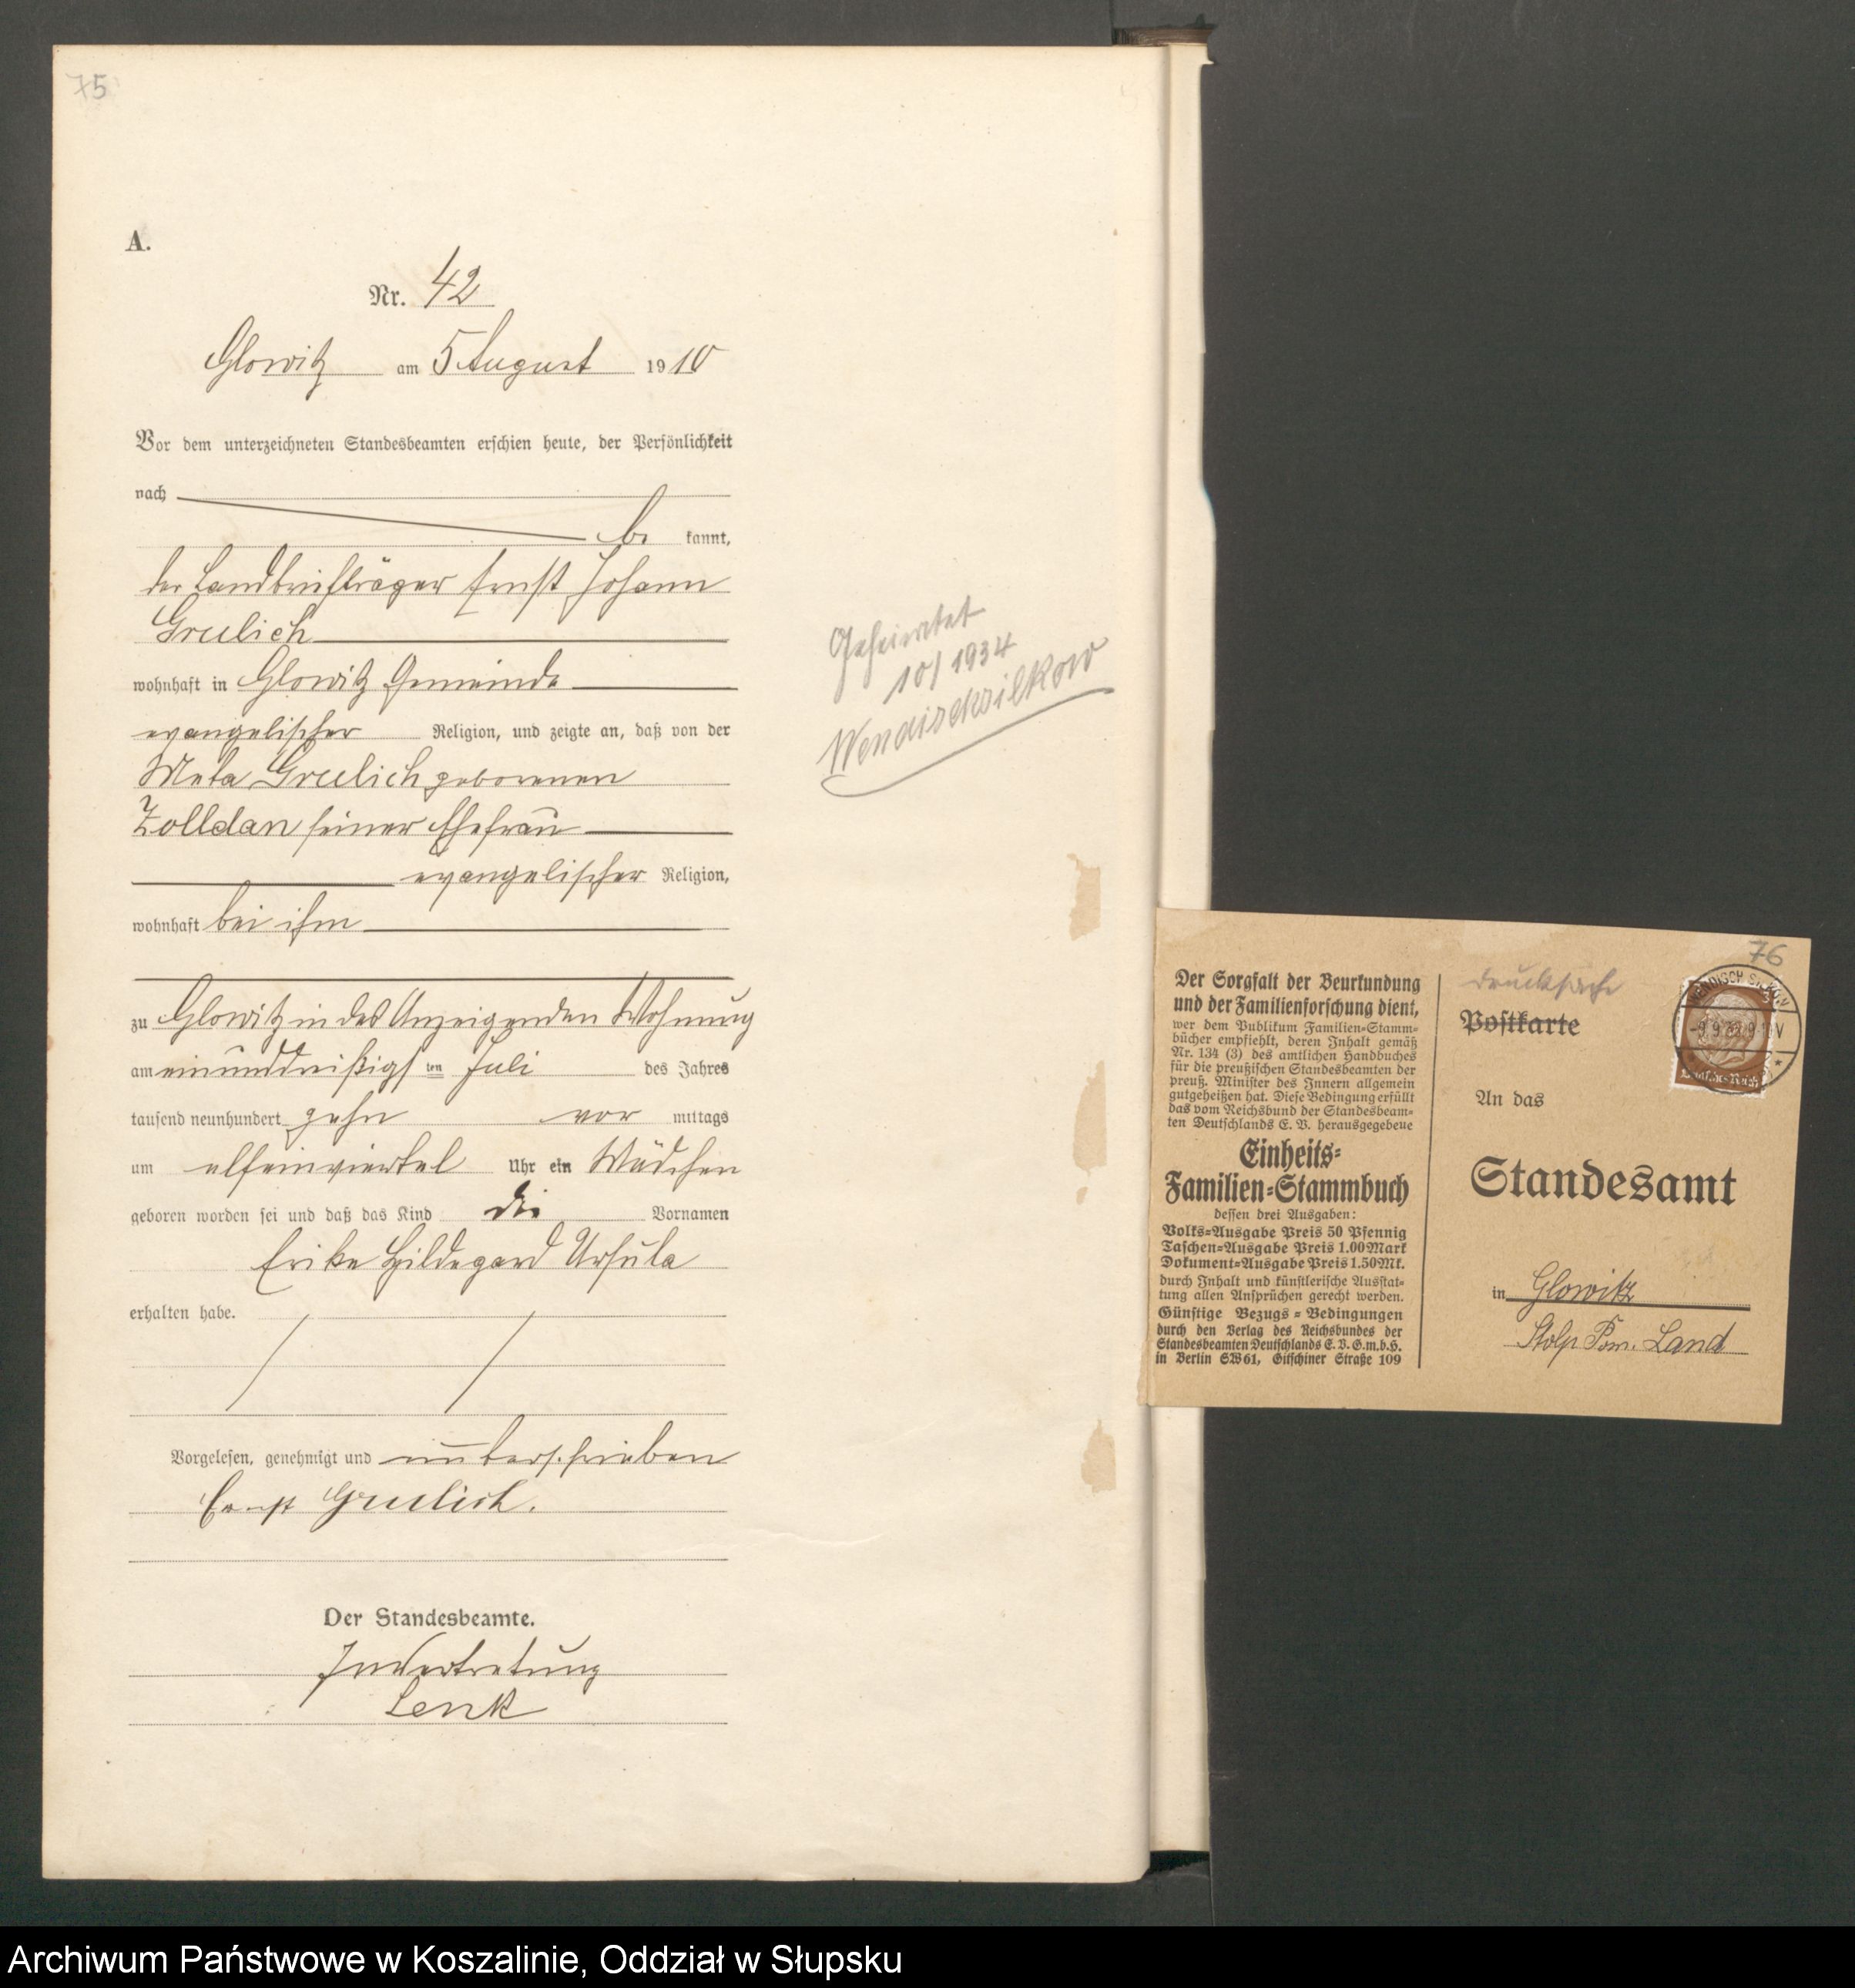 75
A.
Nr. 42
Glowitz am 5 August 1910
Vor dem unterzeichneten Standesbeamten erschien heute, der Persönlichkeit
nach
be kannt,
der Landbriefträger Ernst Johann
Greulich
wohnhaft in Glowitz Gemeinde
evangelischer Religion, und zeigte an, daß von der
Meta Greulich geborenen
Zolldan seiner Ehefrau
evangelischer Religion,
wohnhaft bei ihm
zu Glowitz in des Anzeigenden Wohnung
am einunddreißigsten Juli des Jahres
tausend neunhundert zehn vor mittags
um elfeinviertel Uhr ein Mädchen
geboren worden sei und daß das Kind die Vornamen
Erika Hildegard Ursula
erhalten habe.
Vorgelesen, genehmigt und unterschrieben
Ernst Greulich.
Der Standesbeamte.
In Vertretung
Lenk
Geheiratet
10/1934
Wendischsilkow
Der Sorgfalt der Beurkundung
und der Familienforschung dient,
wer dem Publikum Familien-Stamm-
bücher empfiehlt, deren Inhalt gemäß
Nr. 134 (3) des amtlichen Handbuches
für die preußischen Standesbeamten der
preuß. Minister des Innern allgemein
gutgeheißen hat. Diese Bedingung erfüllt
das vom Reichsbund der Standesbeam-
ten Deutschlands E. V. herausgegebene
Einheits-
Familien-Stammbuch
dessen drei Ausgaben:
Volks-Ausgabe Preis 50 Pfennig
Taschen-Ausgabe Preis 1.00 Mark
Dokument-Ausgabe Preis 1.50 Mk.
durch Inhalt und künstlerische Ausstat-
tung allen Ansprüchen gerecht werden.
Günstige Bezugs-Bedingungen
durch den Verlag des Reichsbundes der
Standesbeamten Deutschlands E. V. G.m.b.H.
in Berlin SW61, Gitschiner Straße 109
76
Drucksache
Postkarte
WENDISCH SILKOW
Deutsches Reich
An das
Standesamt
in Glowitz
Stolp Pom. Land
Archiwum Państwowe w Koszalinie, Oddział w Słupsku